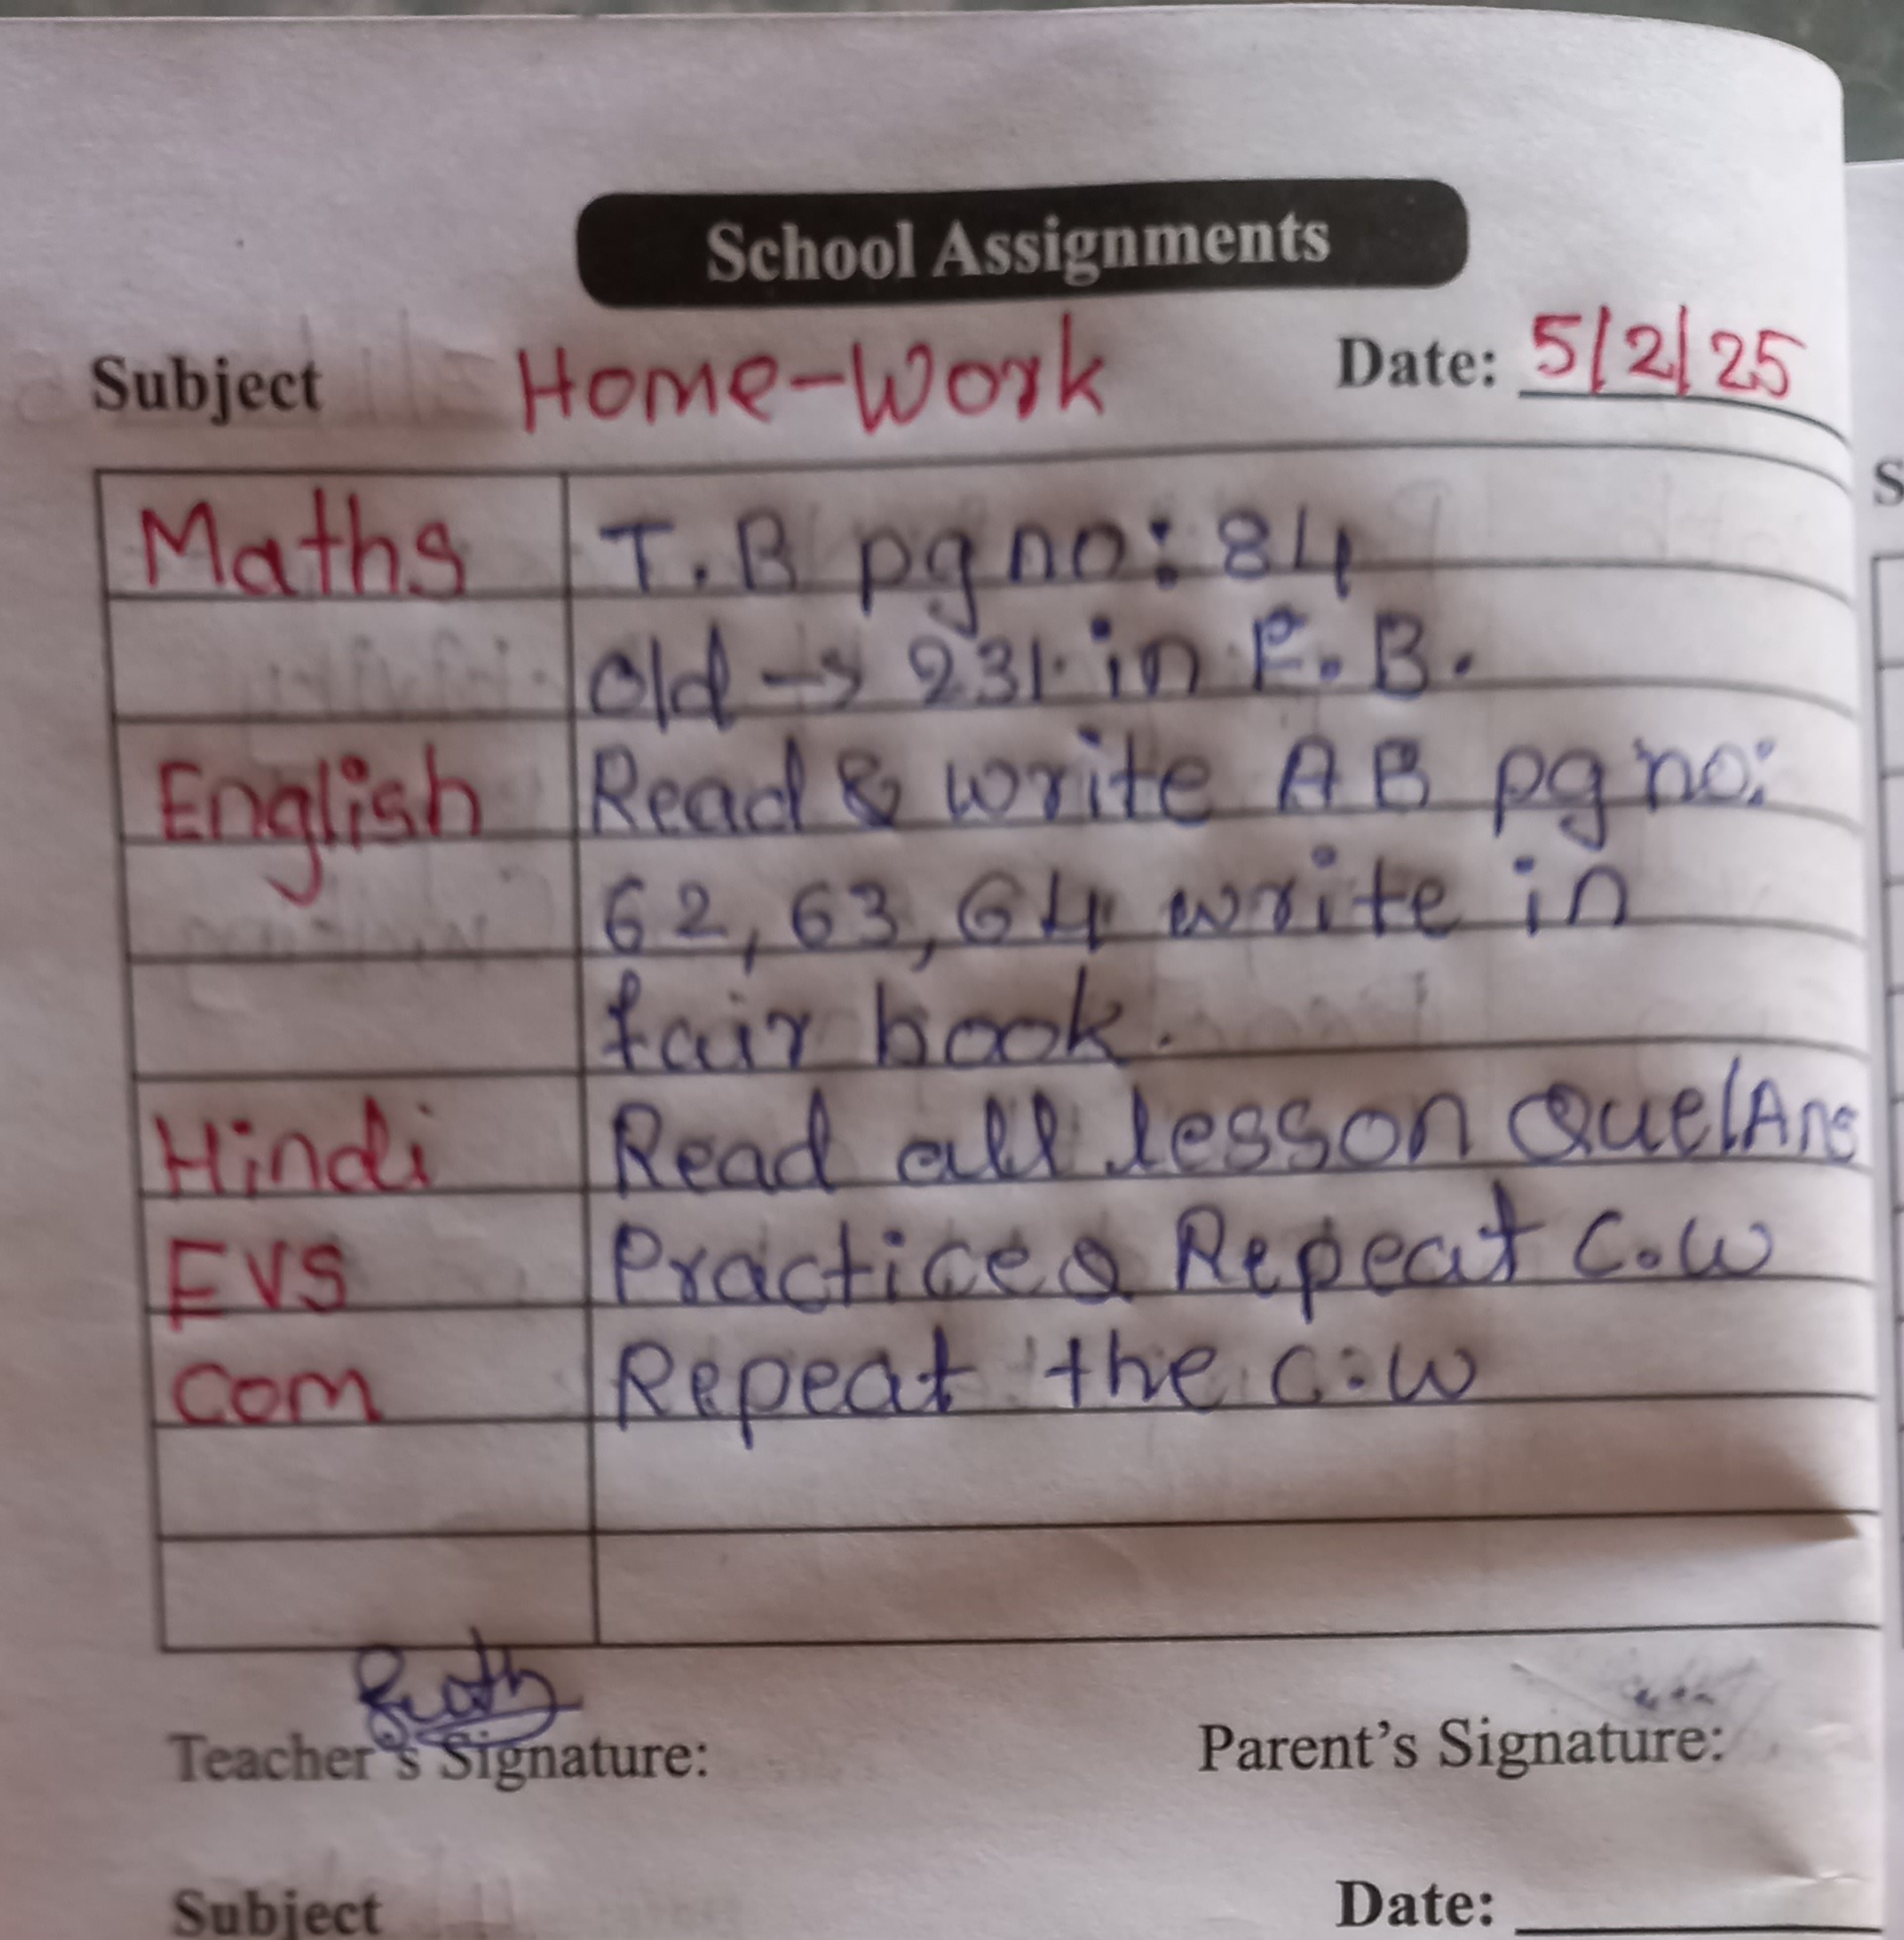 School Assignments
Subject Home-Work Date: 5/2/25
Maths T.B pg no: 84
old → 231 in F.B.
English Read & write AB pg no:
62, 63, 64 write in
fair book.
Hindi Read all lesson Que/Ans
EVS Practice & Repeat C.W
Com Repeat the C.W
Teacher's Signature: Parent's Signature:
Subject Date: